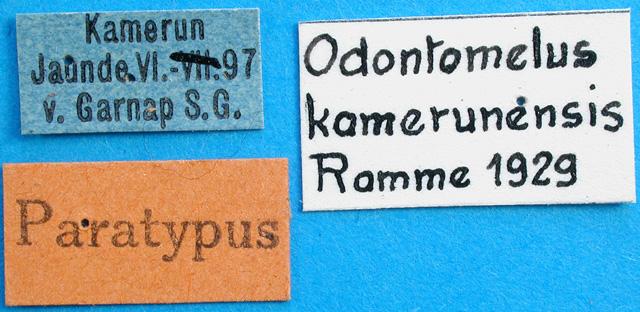 Kamerun
Jaunde.VI.-VIII.97
v. Garnap S.G.
Paratypus
Odontomelus
kamerunensis
Ramme 1929